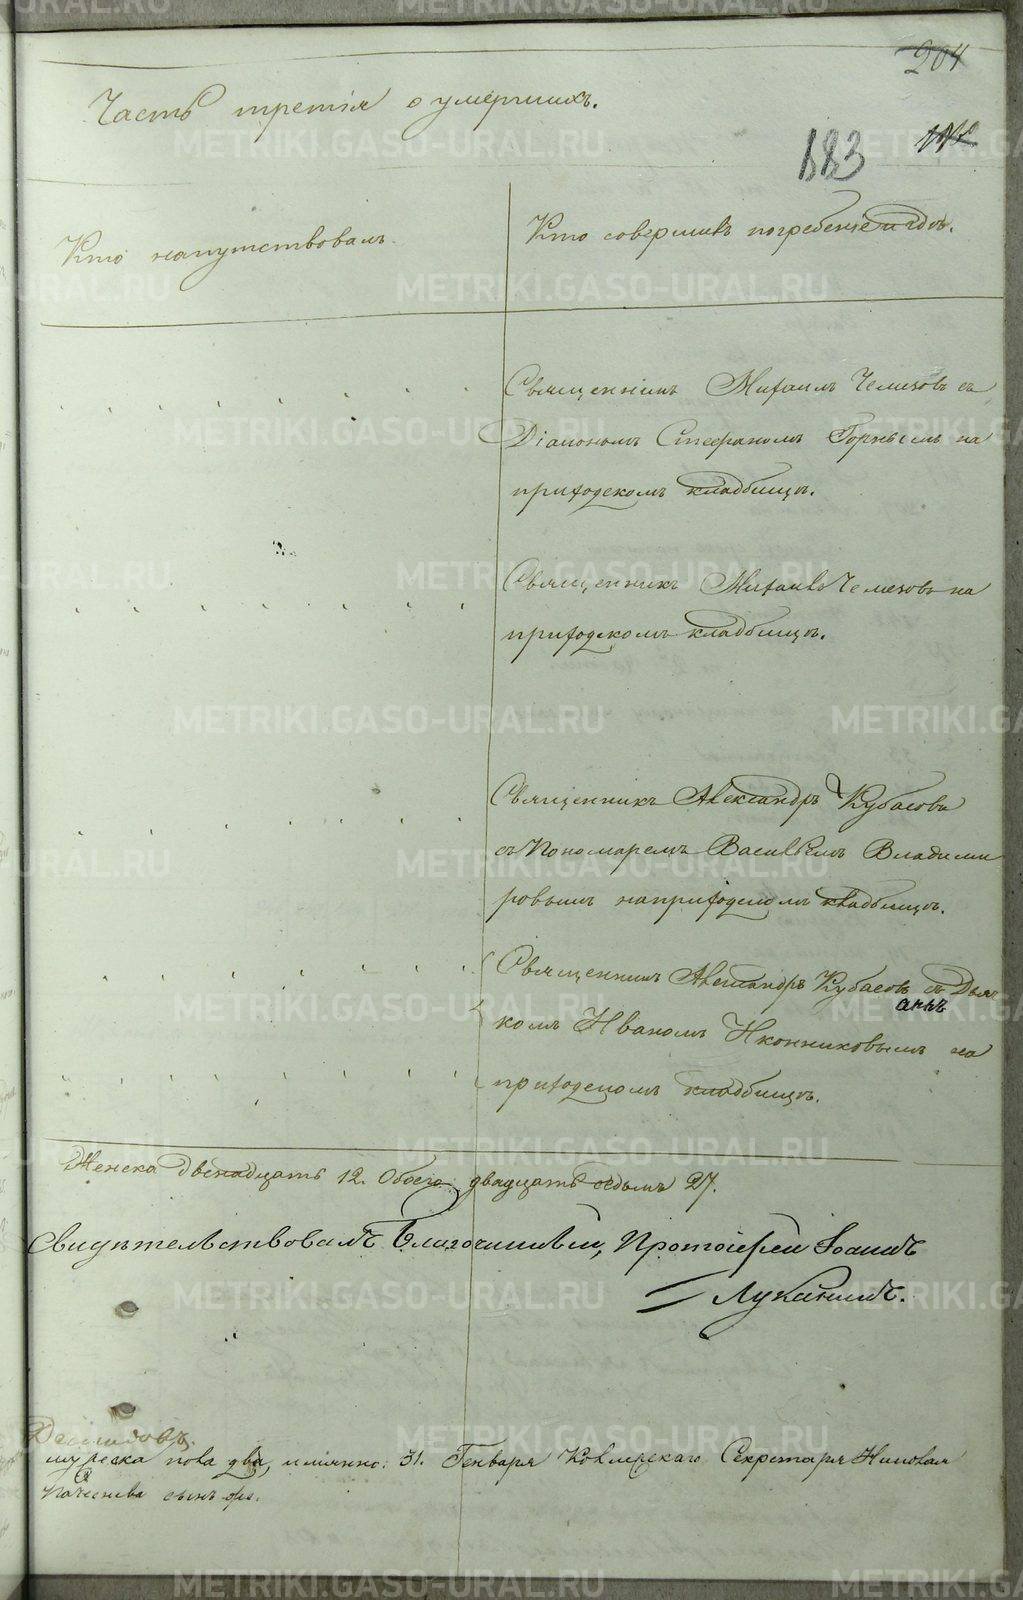 204
Часть третія о умершихъ.
183
Кто напутствовалъ.
Кто совершилъ погребеніе и гдѣ.
Священникъ Михаилъ Чемезовъ съ
Діакономъ Стефаномъ Горныхъ на
приходскомъ кладбищѣ.
Священникъ Михаилъ Чемезовъ на
приходскомъ кладбищѣ.
Священникъ Александръ Кубасовъ
съ Пономаремъ Василіемъ Владими
ровымъ на приходскомъ кладбищѣ.
Священникъ Александръ Кубасовъ съ Дья
комъ Иваномъ Иконниковымъ на
приходскомъ кладбищѣ.
Женска двенадцать 12. Обоего двадцать седьмъ 27.
Свидѣтельствовалъ Благочинный, Протоіерей Іоаннъ
Луканинъ.
мужеска пола два, имянно: 31. Генваря Коллежскаго Секретаря Николая
сынъ
METRIKI.GASO-URAL.RU